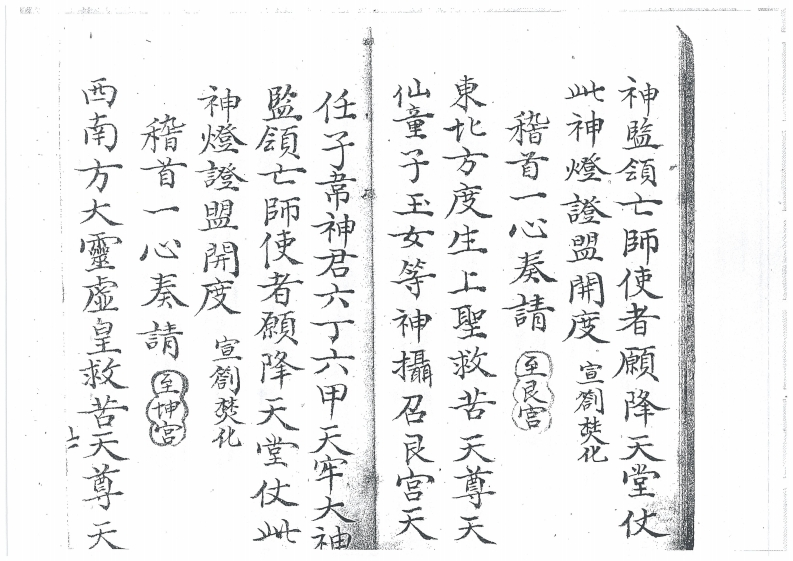 神監領亡師使者願降天堂仗
此神燈證盟開度 宣劄焚化
稽首一心奏請 至艮宮
東北方度生上聖救苦天尊天
仙童子玉女等神攝召艮宮天
任子帝神君六丁六甲天牢大神
監領亡師使者願降天堂仗此
神燈證盟開度 宣劄焚化
稽首一心奏請 至坤宮
西南方大靈虛皇救苦天尊天